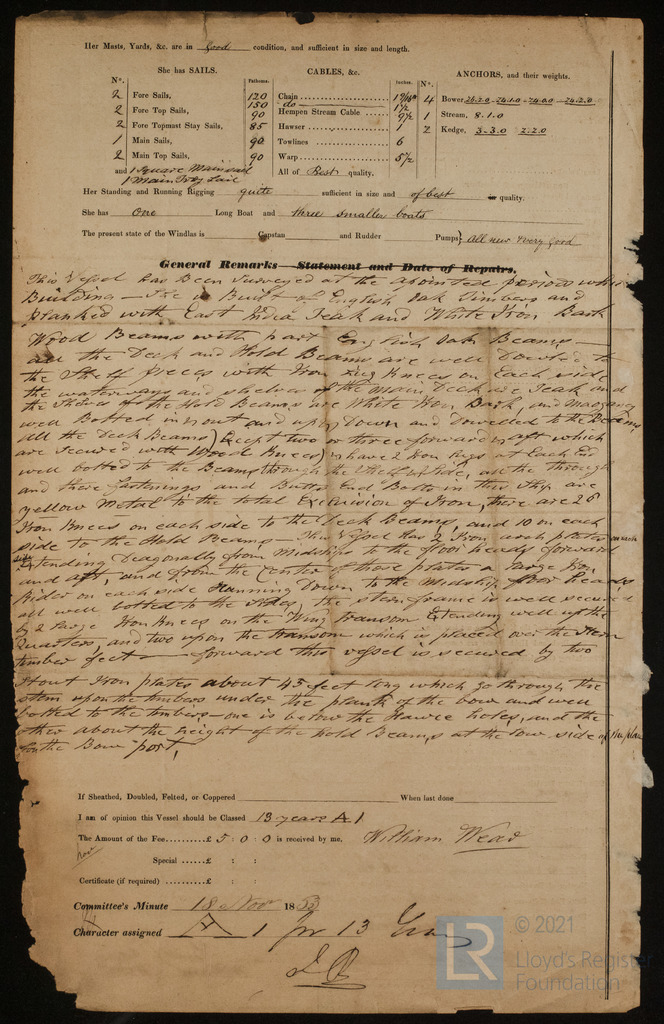 Her Masts, Yards, &c. are in good condition, and sufficient in size and length.
She has SAILS.
CABLES, &c.
ANCHORS, and their weights.
N°.
Fathoms.
Inches.
N°.
2 Fore Sails,
2 Fore Top Sails,
2 Fore Topmast Stay Sails,
1 Main Sails,
2 Main Top Sails,
and 1 Square Mainsail
120 Chain
150 do 1½
90 Hempen Stream Cable 9½
85 Hawser
90 Towlines 6
90 Warp 5½
All of Best quality.
4 Bower 24.2.0 24.1.0 24.0.0 24.2.0
1 Stream, 8.1.0
2 Kedge, 3-3.0 2.2.0
Her Standing and Running Rigging quite sufficient in size and of best in quality.
She has one Long Boat and three smaller boats
The present state of the Windlas is Capstan and Rudder Pumps} All new & very good
General Remarks—Statement and Date of Repairs.
This Vessel has been surveyed at the apointed periods whilst
Building — She is Built of English Oak Timbers and
planked with East India Teak and White Iron Bark
Wood Beams with part English Oak Beams —
all the Deck and Hold Beams are well Doweled to
the Shelf pieces with Iron Knees on Each side
the waterways and shelves of the Main Deck are Teak and
the Shelves of the Hold Beams are White Iron Bark, and
well Botted in & out and up & Down and Dowelled to the Beams
all the Deck Beams Except two or three forward & aft which
are secured with Wood Knees have 2 Iron at Each End
well botted to the Beams through the all the through
and there fastenings and Butts End Bolts in this Ship are
yellow Metal to the total Exclusion of Iron, there are 26
Iron Knees on each side to the Deck Beams, and 10 on each
side to the Hold Beams — This Vessel has 2 Iron plates on each
side Extending Diagonally from Midships to the floor heads forward
and aft, and from the Center of those plates a large Iron
Rider on each side Running Down to the Midship floor heads
all well botted to the sides, the stern frame is well secured
by 2 large Iron Knees on the Wing transom Extending well up the
Quarters, and two upon the transom which is placed over the Stern
timber feet — forward this vessel is secured by two
Stout Iron plates about 45 feet long which go through the
stem upon the timbers under the plank of the bow and well
botted to the timbers — one is below the Hawse holes, and the
other about the height of the hold Beams at the low side of the plan
for the Bow port,
If Sheathed, Doubled, Felted, or Coppered When last done
I am of opinion this Vessel should be Classed 13 years A 1
The Amount of the Fee........£ 5 : 0 : 0 is received by me, William Wead
Special ......£ : :
Certificate (if required) ......£ : :
Committee's Minute 18 Novr 1853
Character assigned A 1 for 13 Yrs
LR
© 2021
Lloyd's Register
Foundation